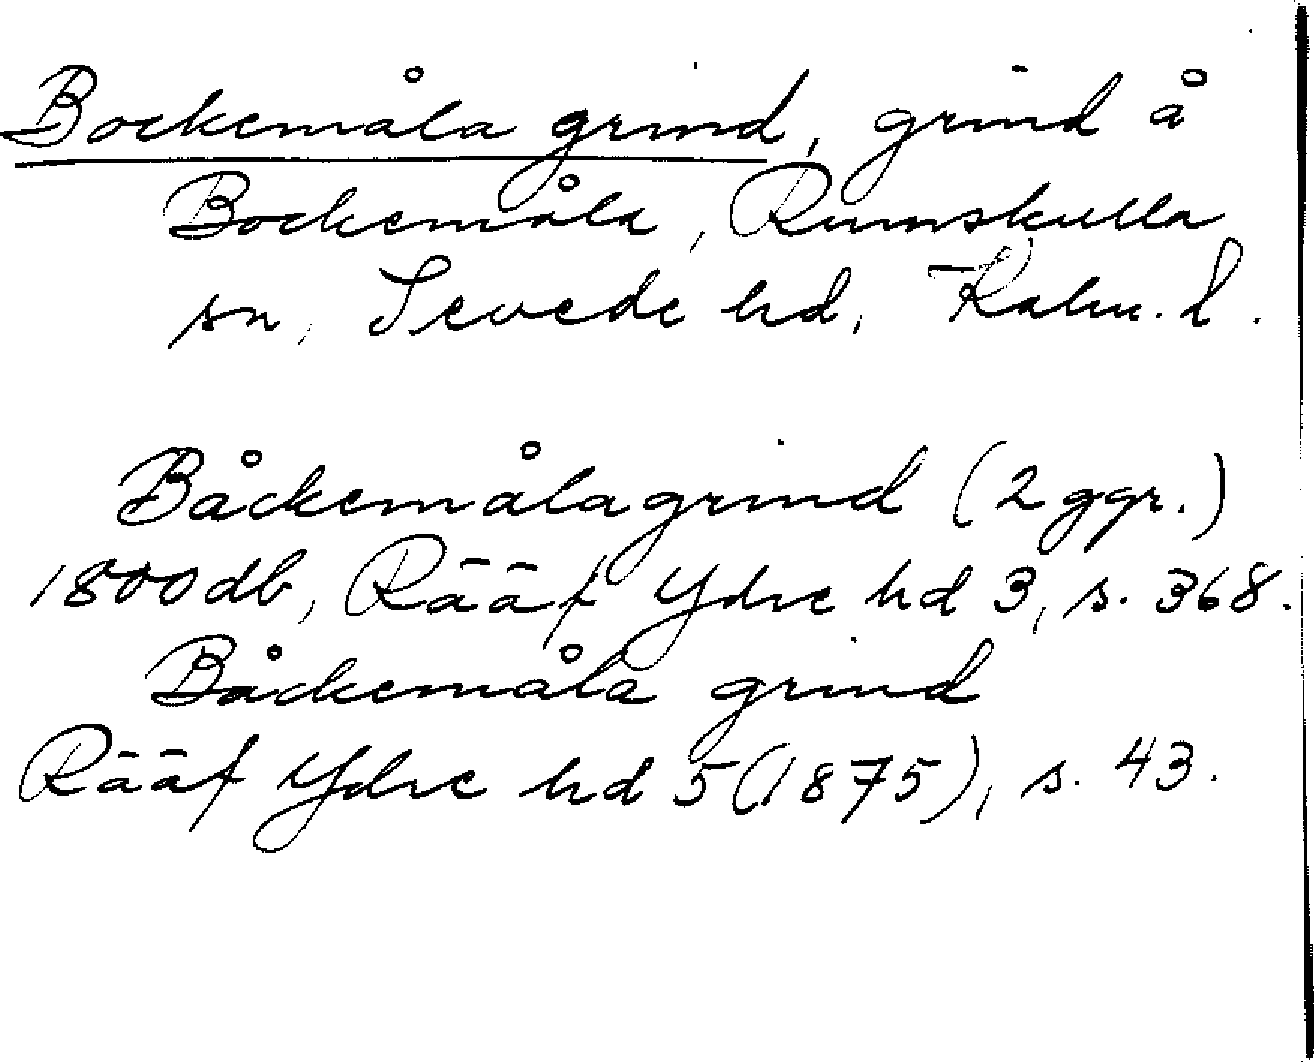 Bockemåla grind, grind å
Bockemåla, Rumskulla
sn, Sevede hd, Kalm. l.
Båckemålagrind (2 ggr.)
1800 db, Rääf Ydre hd 3, s. 368.
Båckemåla grind
Rääf Ydre hd 5 (1875), s. 43.